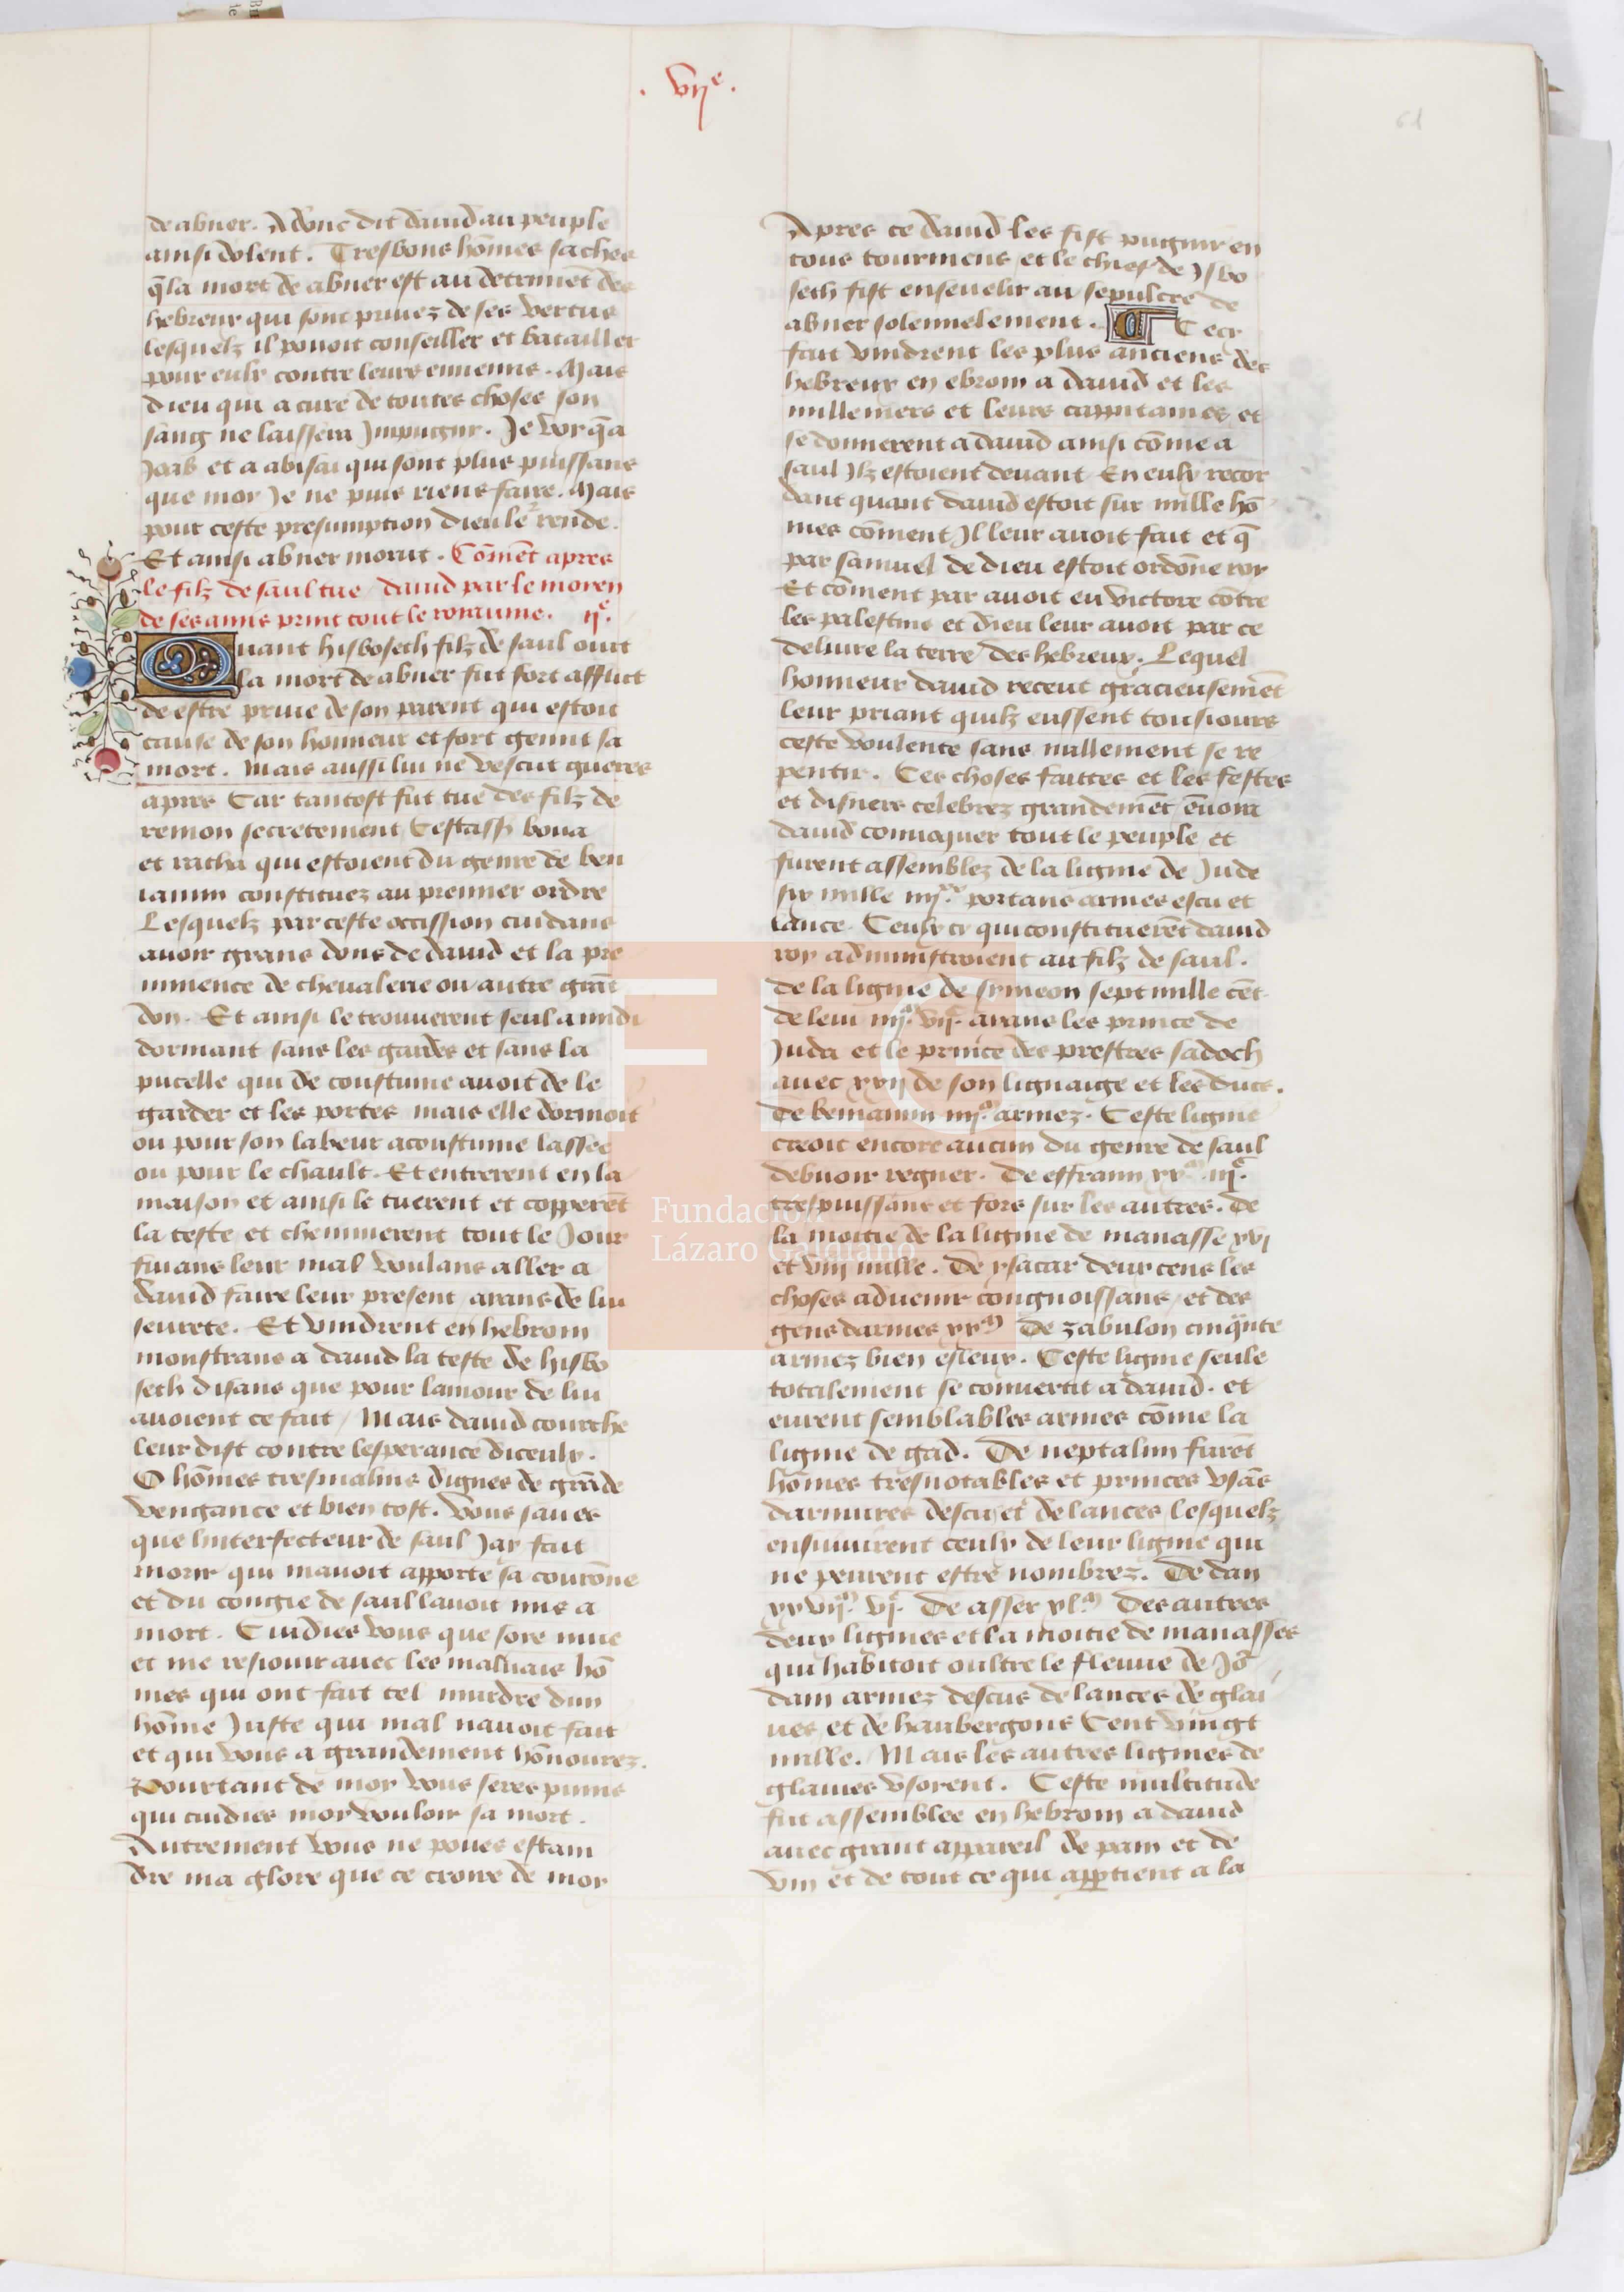 . vije .
61
de abner. Adonc dit david au peuple
ainsi dolent. Tresbons hōmes saches
q̄ la mort de abner est au detrimēt des
hebreux qui sont privez de ses vertus
lesquelz il povoit conseiller et batailler
pour eulx contre leurs ennemis. Mais
dieu qui a cure de toutes choses son
sang ne laissera Impugny. Je voy q̄ a
Joab et a abisai qui sont plus puissans
que moy Je ne puis riens faire. Mais
pour ceste presumption dieu le rende.
Et ainsi abner morut. Cōmēt apres
le filz de saul tue / david par le moyen
de ses amis print tout le royaume. ije.
Quant hisboseth filz de saul ouit
la mort de abner fut fort afflict
de estre prive de son parent qui estoit
cause de son honneur et fort gemit sa
mort. Mais aussi lui ne vescut gueres
apres Car tantost fut tue des filz de
remon secretement Cestass̄ bona
et racha qui estoient du genre de ben
iamin constituez au premier ordre
Lesquelz par ceste occission cuidans
avoir grans dons de david et la pre
minence de chevalerie ou autre grāt
don. Et ainsi le trouverent seul a midi
dormant sans les gardes et sans la
pucelle qui de coustume avoit de le
garder et les portes mais elle dormoit
ou pour son labeur acoustume lassee
ou pour le chault. Et entrerent en la
maison et ainsi le tuerent et copperēt
la teste et cheminerent tout le Jour
fuians leur mal voulans aller a
david faire leur present / aians de lui
seurete. Et vindrent en hebrom
monstrans a david la teste de hisbo
seth disans que pour lamour de lui
avoient ce fait / Mais david courche
leur dist contre lesperance diceulx.
O hōmes tresmalins dignes de grāde
vengance et bien tost. Vous saves
que linterfecteur de saul Jay fait
morir qui mavoit apporte sa courōne
et du congie de saul lavoit mis a
mort. Cuidies vous que soye mue
et me resiouir avec les malvais hō
mes qui ont fait tel murdre dun
hōme Juste qui mal navoit fait
et qui vous a grandement hōnourez.
Pourtant de moy vous seres punis
qui cuidies moy vouloir sa mort.
Autrement vous ne poves estain
dre ma glore que ce croire de moy
Apres ce david les fist pugnir en
tous tourmens et le chief de Jsbo
seth fist ensevelir au sepulcre de
abner solennelement. Cecy
fait vindrent les plus anciens des
hebreux en ebrom a david et les
milleniers et leurs cappitaines et
se donnerent a david ainsi cōme a
saul Jlz estoient devant En eulx recor
dant quant david estoit sur mille hō
mes cōment Jl leur avoit fait et q̄
par samuel de dieu estoit ordōne roy
Et cōment par avoit eu victore cōtre
les palestins et dieu leur avoit par ce
delivre la terre des hebreux. Lequel
honneur david receut gracieusemēt
leur priant quilz eussent tousiours
ceste voulente sans nullement se re
pentir. Ces choses faittes et les festes
et disners celebrez grandemēt ēvoia
david convoquer tout le peuple et
furent assemblez de la lignie de Jude
six mille iiijc. portans armes escu et
lance. Ceulx cy qui constituerēt david
roy administroient au filz de saul.
De la lignie de symeon sept mille cēt
de levi iiijm. vijc. aians les prince de
Juda et le prince des prestres sadoch
avec xxij de son lignaige et les ducs.
De beniamin iiijm. armez. Ceste lignie
creoit encore aucun du genre de saul
debvoir regner. De effraim xxm. iijc.
trespuissans et fors sur les autres. De
la moitie de la lignie de manasse xvj
et viij mille. De ysacar deux cens les
choses advenir congnoissans / et des
gens darmes xxm De zabulon cinquāte
armez bien esleux. Ceste lignie seule
totalement se convertit a david. et
eurent semblables armes cōme la
lignie de gad. De neptalim furēt
hōmes tresnotables et princes vsās
darmures descu et de lances lesquelz
ensuivirent ceulx de leur lignie qui
ne peurent estre nombrez. De dan
xxvijm. vjc. De asser xlm Des autres
deux lignies et la moitie de manasses
qui habitoit oultre le fleuve de Jō
dain armez descus de lances de glai
ves et de haubergons Cent vingt
mille. Mais les autres lignies de
glaives vsorent. Ceste multitude
fut assemblee en hebrom a david
avec grant appareil de pain et de
vin et de tout ce qui appartient a la
FLG
Fundación
Lázaro Galdiano